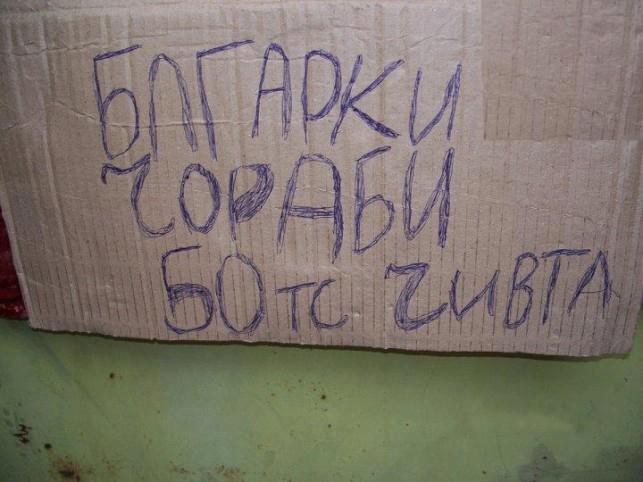 БЛГАРКИ
ЧОРАБИ
50 ТС ЧИВТА